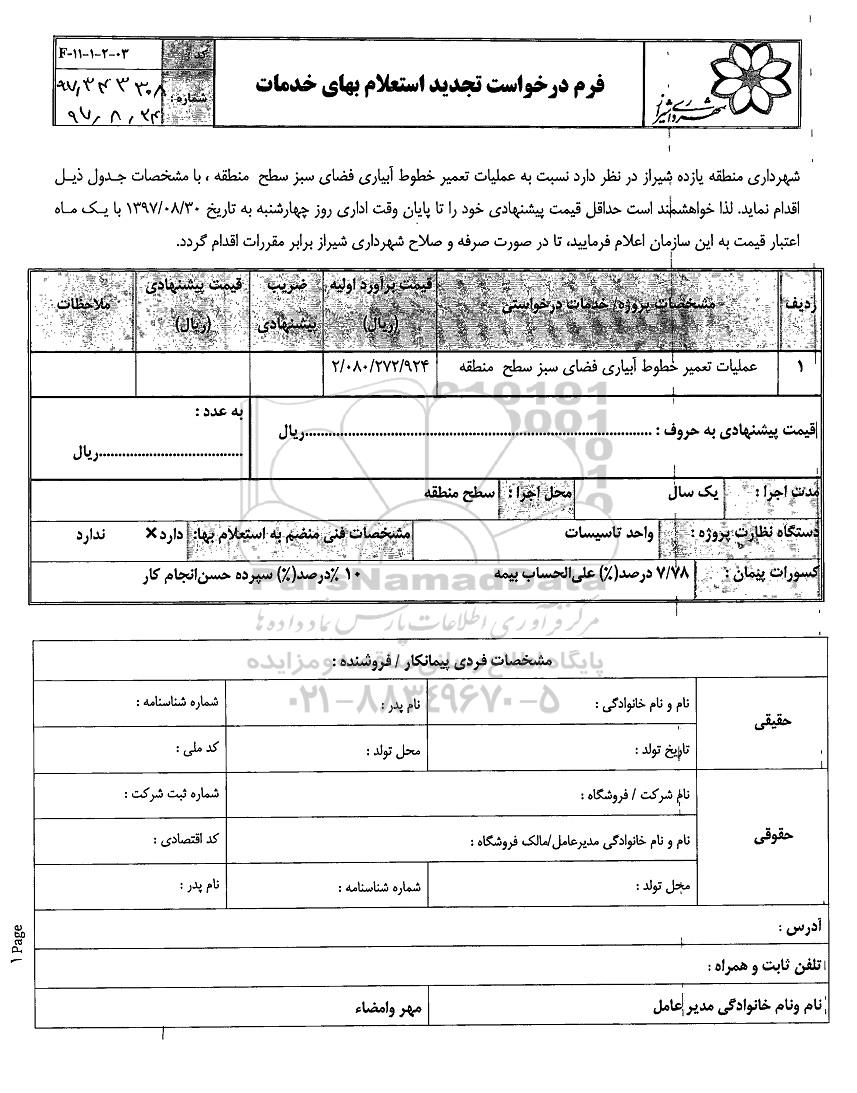 شهرداری شیراز
فرم درخواست تجدید استعلام بهای خدمات
کد : F-۱۱-۱-۲-۰۳
شماره : ۹۷,۳۴۳۳۰۸
۹۷,۸,۲۴
شهرداری منطقه یازده شیراز در نظر دارد نسبت به عملیات تعمیر خطوط آبیاری فضای سبز سطح منطقه ، با مشخصات جدول ذیل
اقدام نماید. لذا خواهشمند است حداقل قیمت پیشنهادی خود را تا پایان وقت اداری روز چهارشنبه به تاریخ ۱۳۹۷/۰۸/۳۰ با یک ماه
اعتبار قیمت به این سازمان اعلام فرمایید، تا در صورت صرفه و صلاح شهرداری شیراز برابر مقررات اقدام گردد.
ردیف مشخصات پروژه/ خدمات درخواستی قیمت برآورد اولیه (ریال) ضریب پیشنهادی قیمت پیشنهادی (ریال) ملاحظات
۱ عملیات تعمیر خطوط آبیاری فضای سبز سطح منطقه ۲/۰۸۰/۲۷۲/۹۲۴
قیمت پیشنهادی به حروف : ........................ریال
به عدد :
........................ریال
مدت اجرا : یک سال محل اجرا : سطح منطقه
دستگاه نظارت پروژه : واحد تاسیسات مشخصات فنی منضم به استعلام بها: دارد× ندارد
کسورات پیمان : ۷/۷۸ درصد(٪) علی‌الحساب بیمه ۱۰ ٪درصد(٪) سپرده حسن‌انجام کار
ParsNamadData
مرکز فرآوری اطلاعات پارس نماد داده ها
مشخصات فردی پیمانکار / فروشنده :
۰۲۱-۸۸۳۴۹۶۷۰-۵
حقیقی
نام و نام خانوادگی : نام پدر : شماره شناسنامه :
تاریخ تولد : محل تولد : کد ملی :
حقوقی
نام شرکت / فروشگاه : شماره ثبت شرکت :
نام و نام خانوادگی مدیرعامل/مالک فروشگاه : کد اقتصادی :
محل تولد : شماره شناسنامه : نام پدر :
آدرس :
تلفن ثابت و همراه :
نام ونام خانوادگی مدیر عامل مهر وامضاء
۱ Page